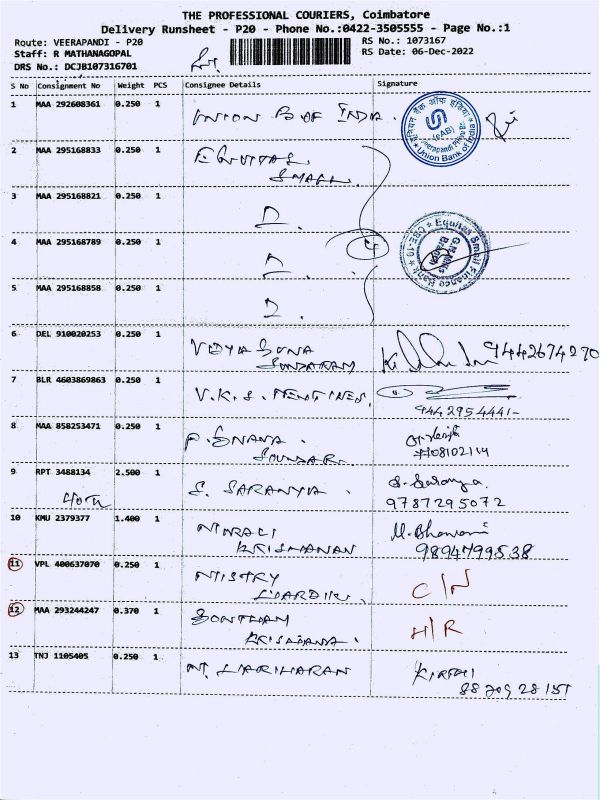 THE PROFESSIONAL COURIERS, Coimbatore
Delivery Runsheet - P20 - Phone No.:0422-3505555 - Page No.:1
Route: VEERAPANDI - P20
RS No.: 1073167
Staff: R MATHANAGOPAL
RS Date: 06-Dec-2022
DRS No.: DCJB107316701
S No Consignment No Weight PCS Consignee Details Signature
1 MAA 292608361 0.250 1 UNION B OF INDIA.
Union Bank of India
2 MAA 295168833 0.250 1 EQUITAS
SMALL
3 MAA 295168821 0.250 1
4 MAA 295168789 0.250 1 4
Equitas Small Finance Bank
5 MAA 295168858 0.250 1
6 DEL 910020253 0.250 1 VIDYA SUNA
SUNDARAM 9442674270
7 BLR 4603869863 0.250 1 V.K.S.
9442954441-
8 MAA 858253471 0.250 1 P. GNANA.
SOUNDARI
9 RPT 3488134 2.500 1 S. SARANYA. S. Saranya.
9787295072
10 KMU 2379377 1.400 1 MURALI
KRISHANAN M. Bhavani
9894799538
11 VPL 400637070 0.250 1 MISTRY
C/N
12 MAA 293244247 0.370 1
KRISHANA. H/R
13 TNJ 1105405 0.250 1 M. HARIHARAN